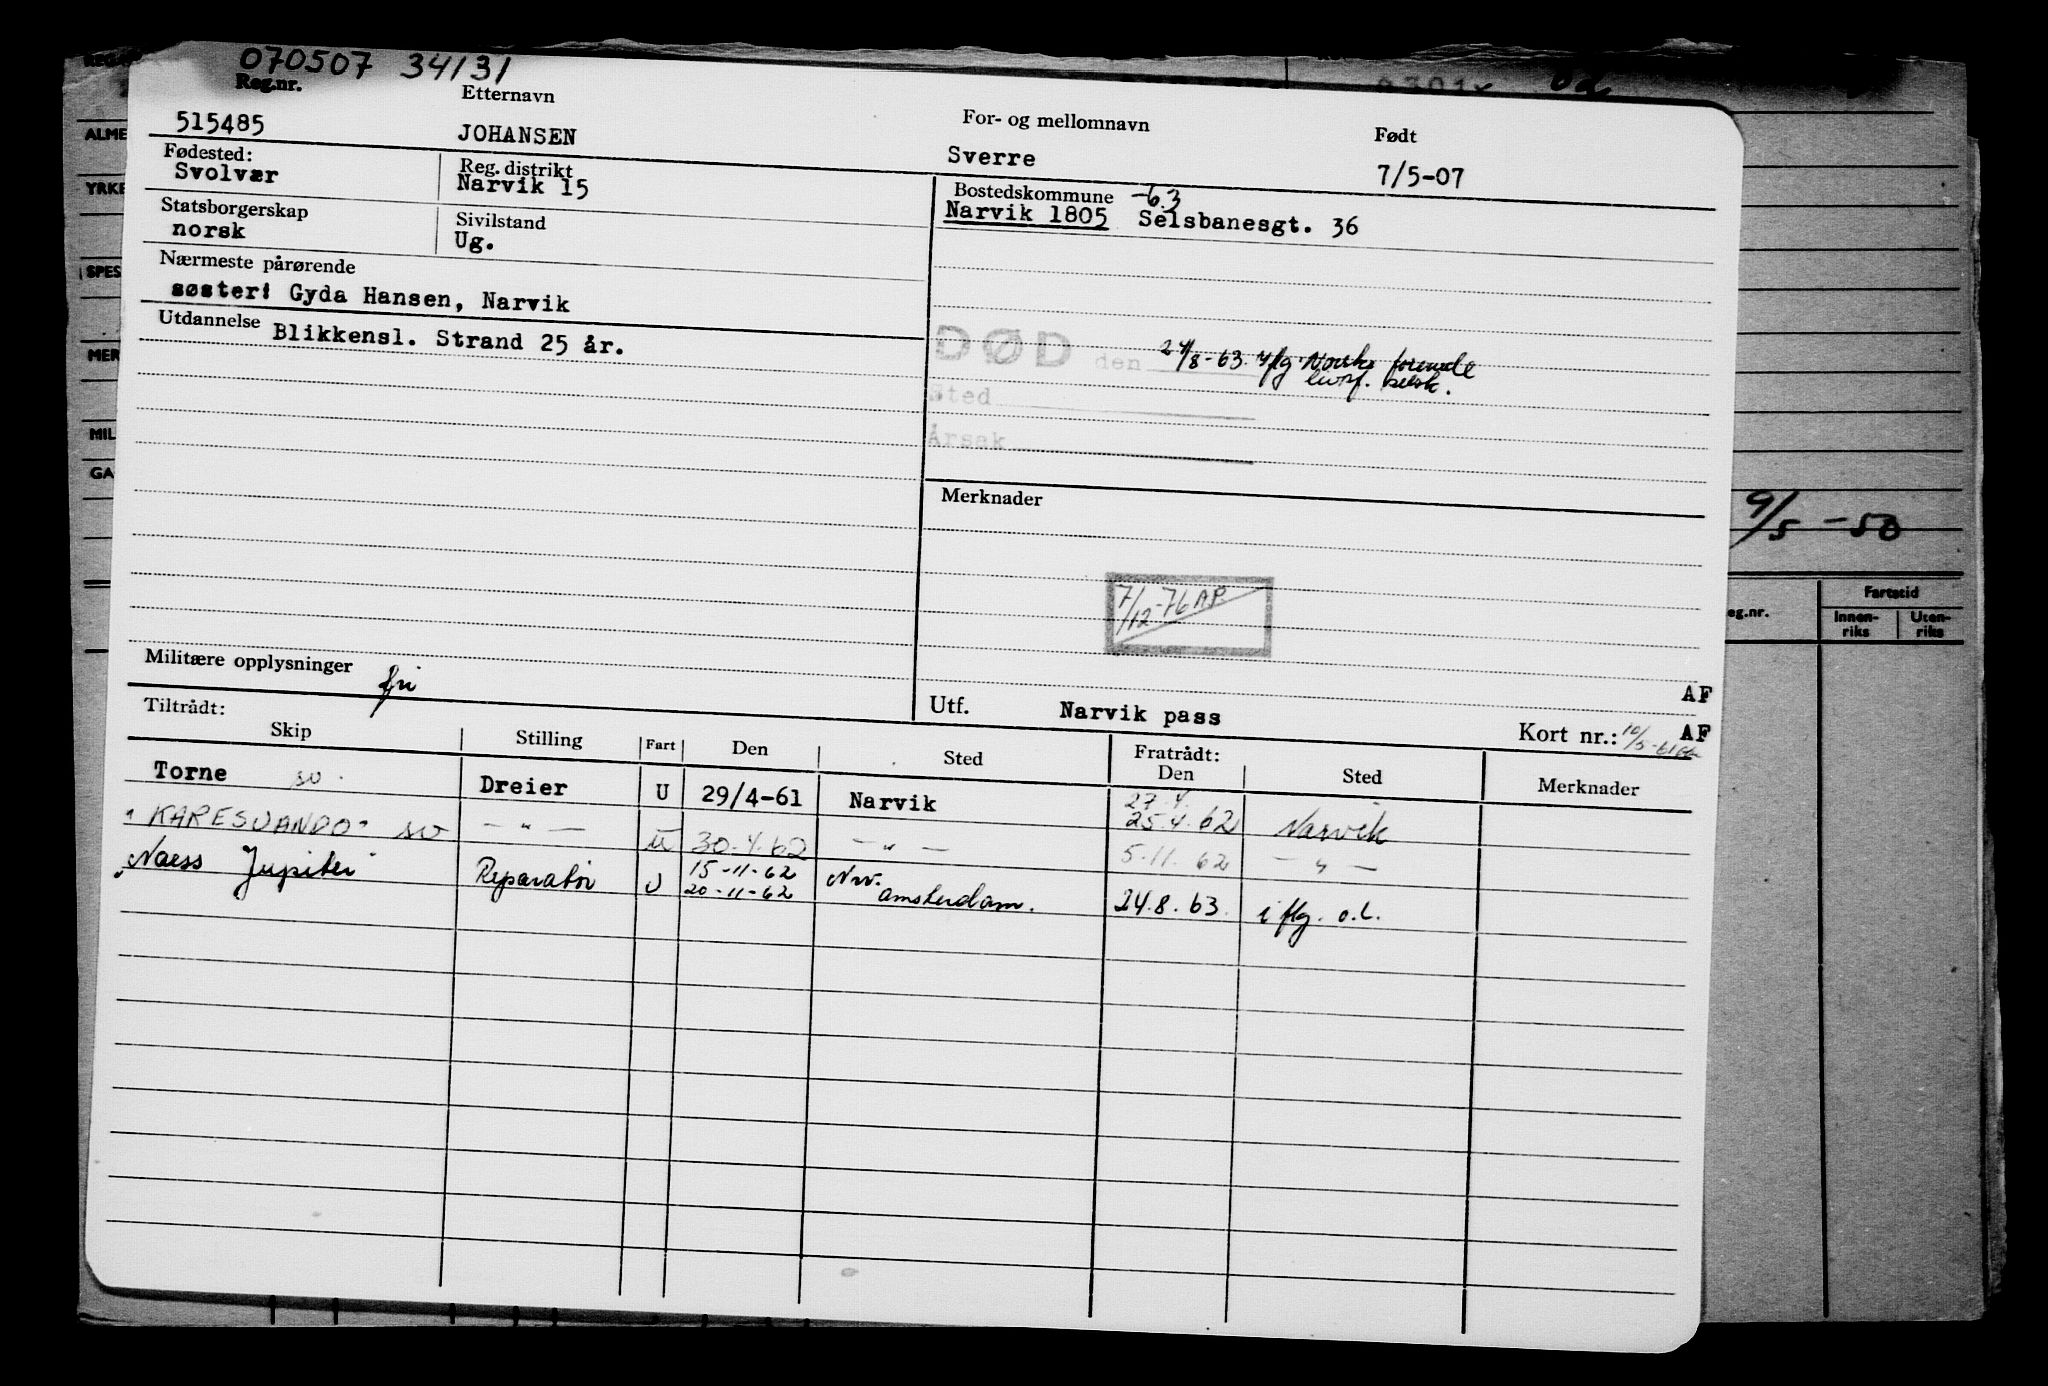 070507 34131
Reg.nr. Etternavn For- og mellomnavn Født
515485 JOHANSEN Sverre 7/5-07
Fødested: Reg. distrikt Bostedskommune -63
Svolvær Narvik 15 Narvik 1805 Selsbanesgt. 36
Statsborgerskap Sivilstand
norsk Ug.
Nærmeste pårørende
søster: Gyda Hansen, Narvik
Utdannelse Blikkensl. Strand 25 år.
DØD den 24/8-63 iflg Norske forened
livsf. selsk.
Sted
Årsak
Merknader
7/12-76 A.P.
Militære opplysninger fri
AF
Utf. Narvik pass Kort nr.: 10/5-61 AF
Tiltrådt: Fratrådt:
Skip Stilling Fart Den Sted Den Sted Merknader
Torne sv. Dreier U 29/4-61 Narvik 27.4. 25.4.62 Narvik
"KARESUANDO" sv — " — U 30.4.62 — " — 5.11.62 — " —
Naess Jupiter Reparatør U 15-11-62 Nrv.
20-11-62 Amsterdam. 24.8.63 iflg. o.l.
ALME
YRKE
SPES
MER
MIL
GA
9/5-50
eg.nr. Fartstid
Innen-
riks Uten-
riks